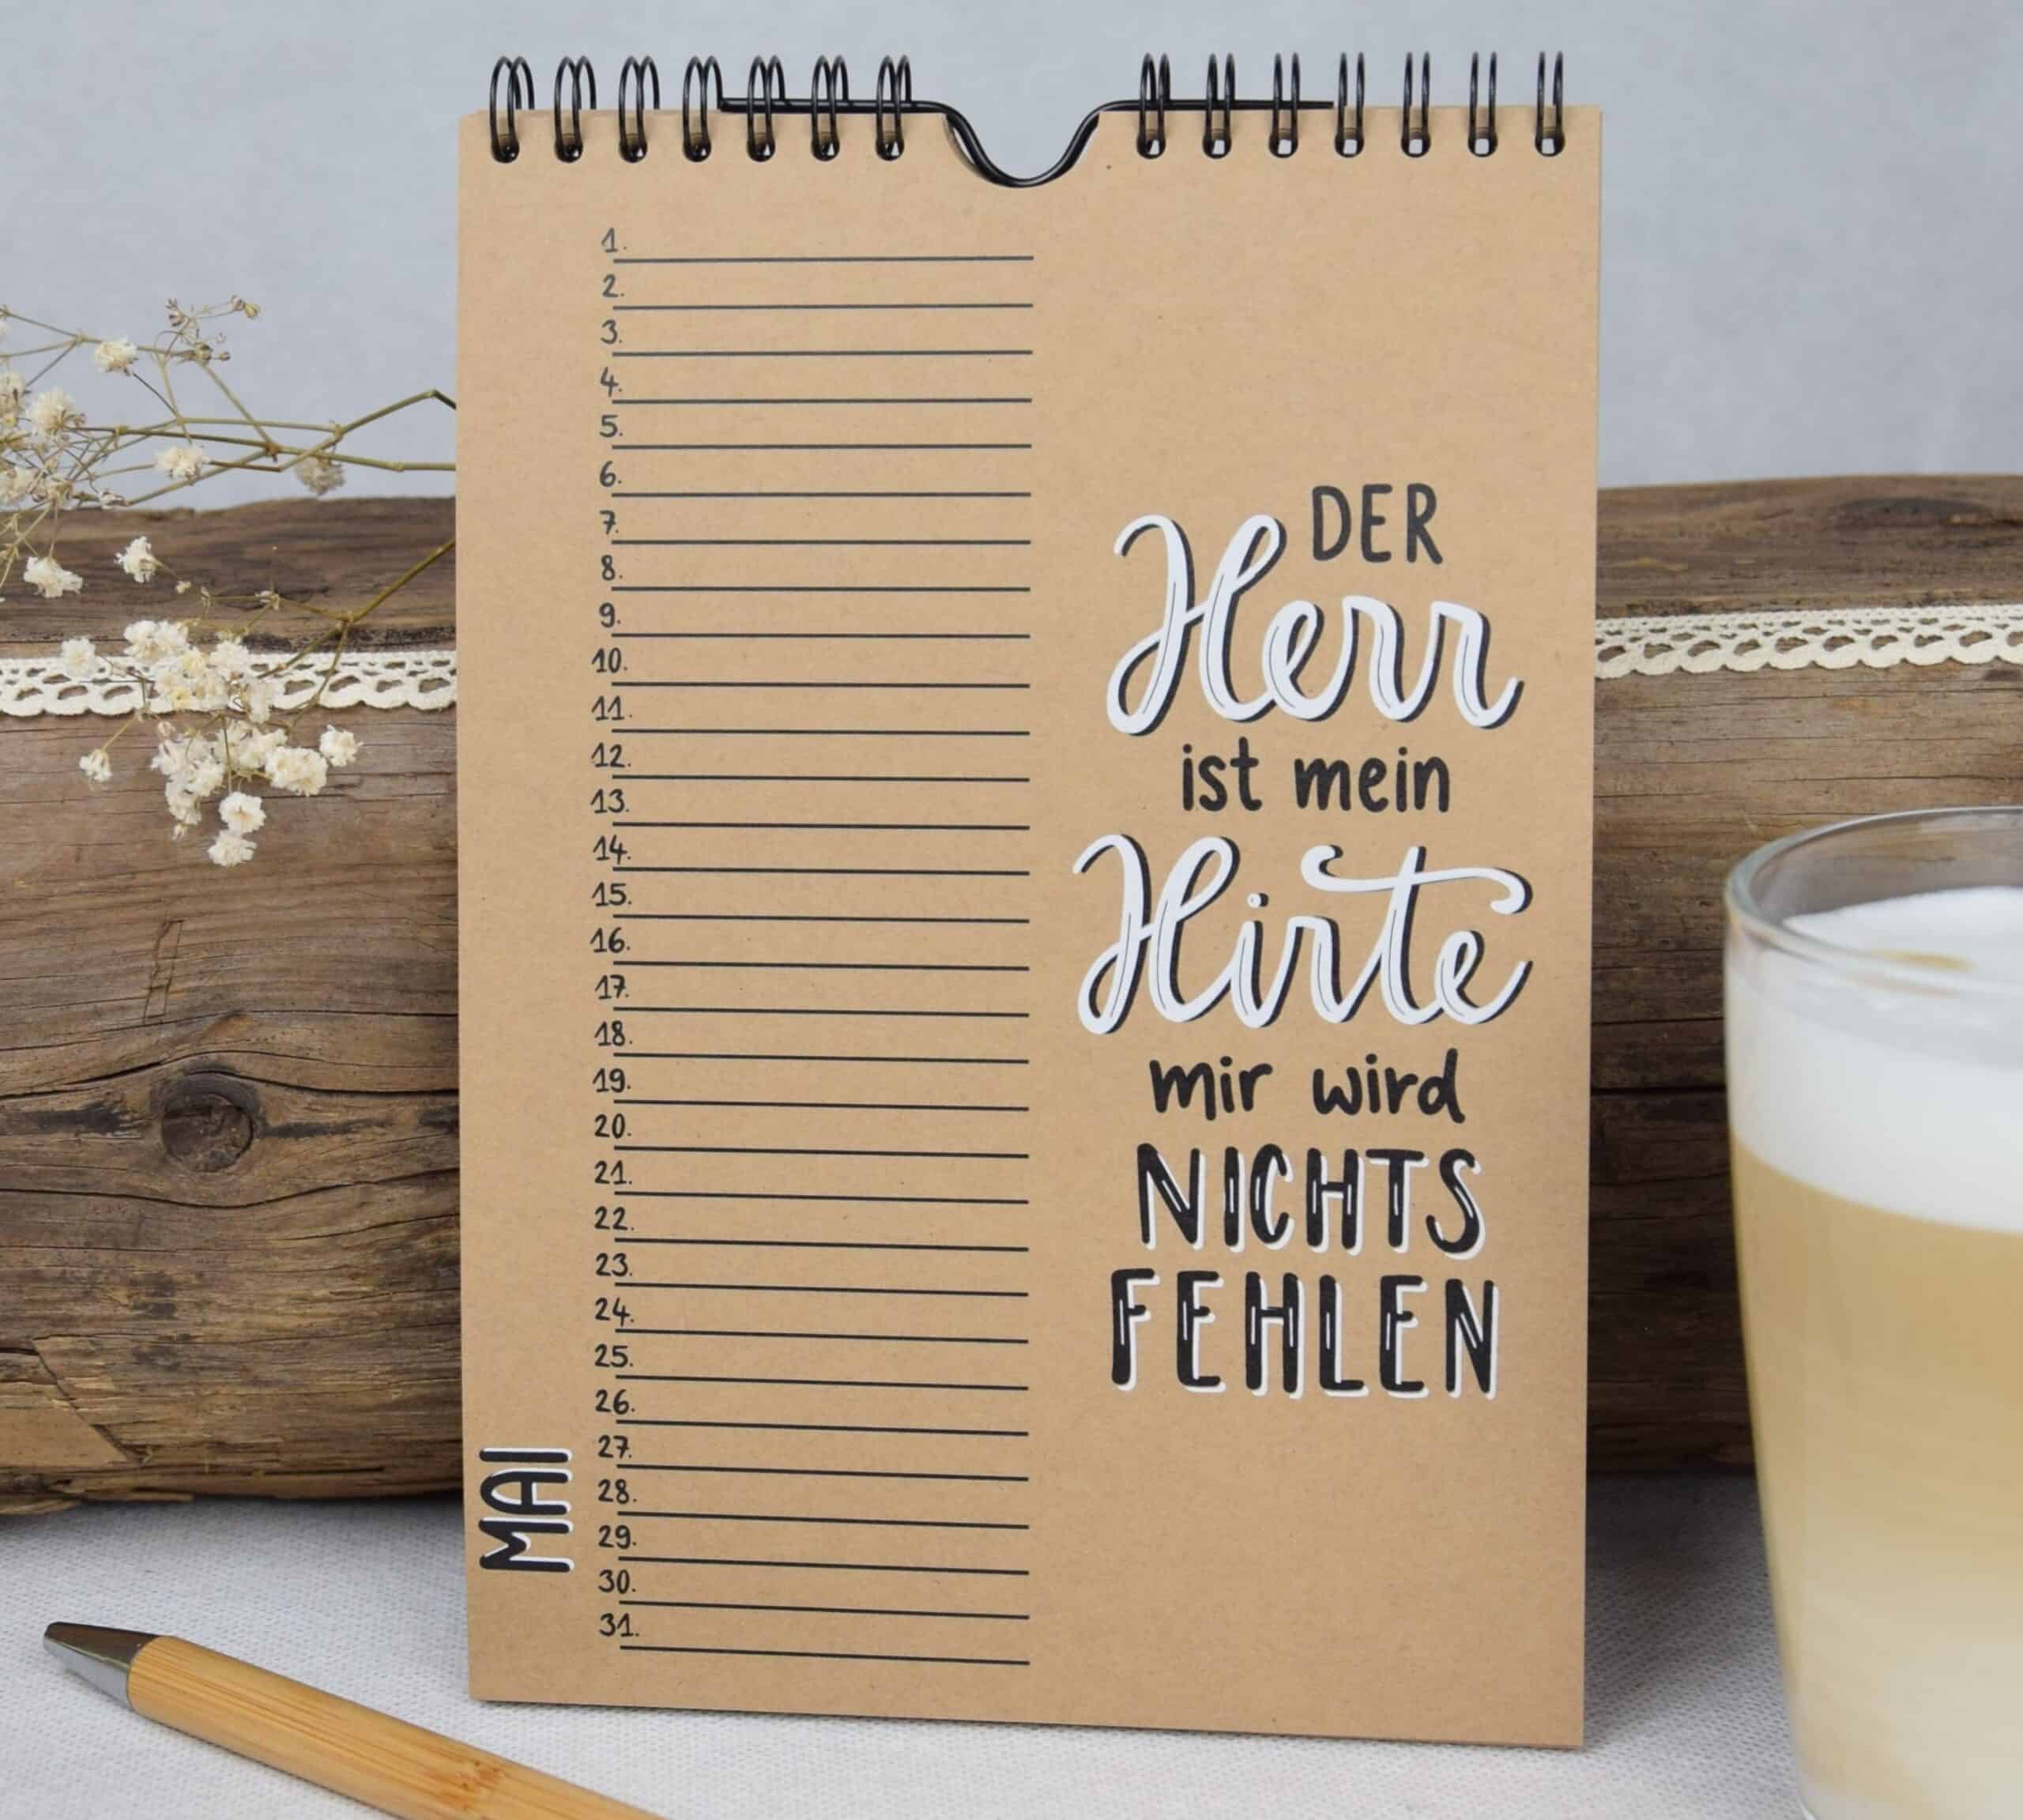 1.
2.
3.
4.
5.
6.
7.
8.
9.
10.
11.
12.
13.
14.
15.
16.
17.
18.
19.
20.
21.
22.
23.
24.
25.
26.
27.
28.
29.
30.
31.
MAI
DER
Herr
ist mein
Hirte
mir wird
NICHTS
FEHLEN